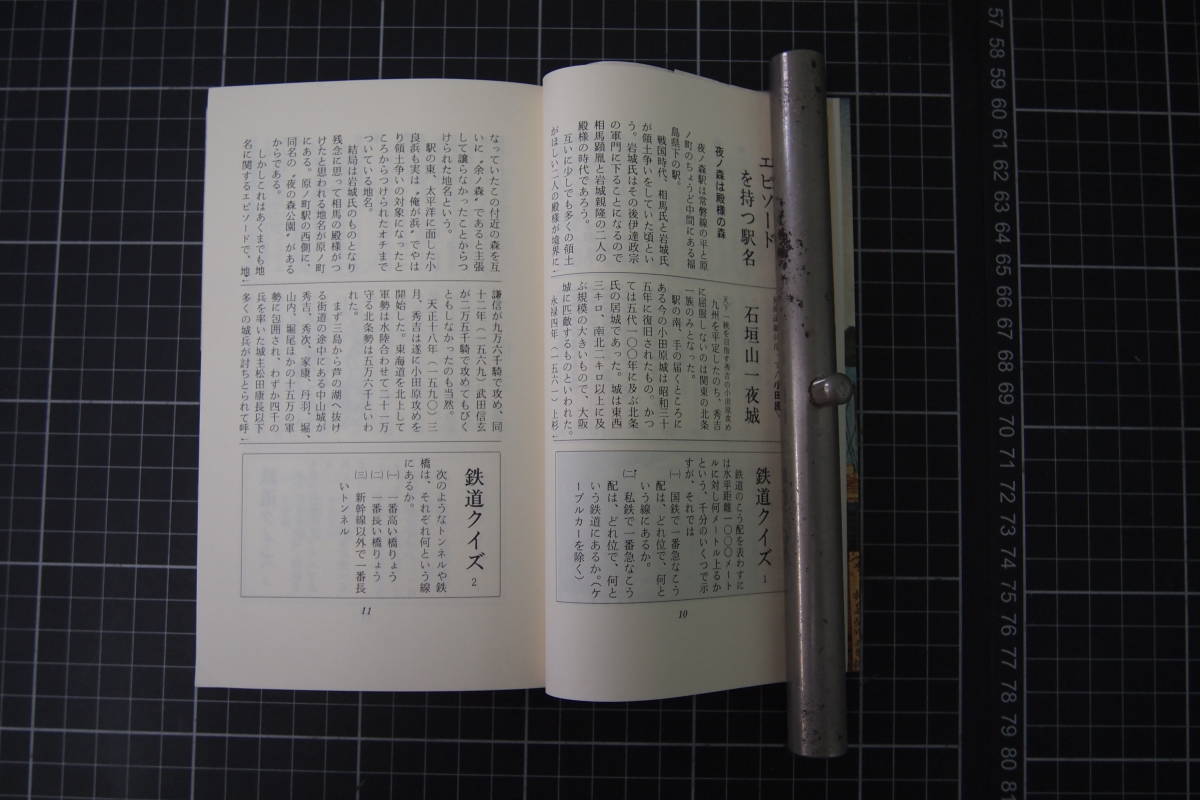 エピソード
を持つ駅名
夜ノ森は殿様の森
夜ノ森駅は常磐線の平と原
ノ町のちょうど中間にある福
島県下の駅。
戦国時代、相馬氏と岩城氏
が領土争いをしていた頃とい
う。岩城氏はその後伊達政宗
の軍門に下ることになるので
相馬顕胤と岩城親隆の二人の
殿様の時代であろう。
互いに少しでも多くの領土
がほしい二人の殿様が境界に
石垣山一夜城
九州を平定したのち、秀吉
に屈服しないのは関東の北条
一族のみとなった。
駅の南、手の届くところに
ある今の小田原城は昭和三十
五年に復旧されたもの。かつ
ては五代一〇〇年に及ぶ北条
氏の居城であった。城は東西
三キロ、南北二キロ以上に及
ぶ規模の大きいもので、大阪
城に匹敵するものといわれた。
永禄四年(一五六一)上杉
鉄道クイズ 1
鉄道のこう配を表わすに
は水平距離一〇〇〇メート
ルに対し何メートル上るか
という、千分のいくつで示
すが、それでは
㈠ 国鉄で一番急なこう
配は、どれ位で、何と
いう線にあるか。
㈡ 私鉄で一番急なこう
配は、どれ位で、何と
いう鉄道にあるか。(ケ
ーブルカーを除く)
10
なっていたこの付近の森を互
いに〝余ノ森〟であると主張
して譲らなかったことからつ
けられた地名という。
駅の東、太平洋に面した小
良浜も実は〝俺が浜〟でやは
り領土争いの対象になったと
ころからつけられたオチまで
ついている地名。
結局は岩城氏のものとなり
残念に思って相馬の殿様がつ
けたと思われる地名が原ノ町
にある。原ノ町駅の西側に、
同名の〝夜の森公園〟がある
からである。
しかしこれはあくまでも地
名に関するエピソードで、地
謙信が九万六千騎で攻め、同
十二年(一五六九)武田信玄
が二万五千騎で攻めてもびく
ともしなかったのも当然。
天正十八年(一五九〇)三
月、秀吉は遂に小田原攻めを
開始した。東海道を北上して
軍勢は水陸合わせて二十一万
守る北条勢は五万六千といわ
れた。
まず三島から芦の湖へ抜け
る街道の途中にある中山城が
秀吉、秀次、家康、丹羽、堀、
山内、堀尾ほかの十五万の軍
勢に包囲され、わずか四千の
兵を率いた城主松田康長以下
多くの城兵が討ちとられて呼
鉄道クイズ 2
次のようなトンネルや鉄
橋は、それぞれ何という線
にあるか。
㈠ 一番高い橋りょう
㈡ 一番長い橋りょう
㈢ 新幹線以外で一番長
いトンネル
11
57
58
59
60
61
62
63
64
65
66
67
68
69
70
71
72
73
74
75
76
77
78
79
80
81